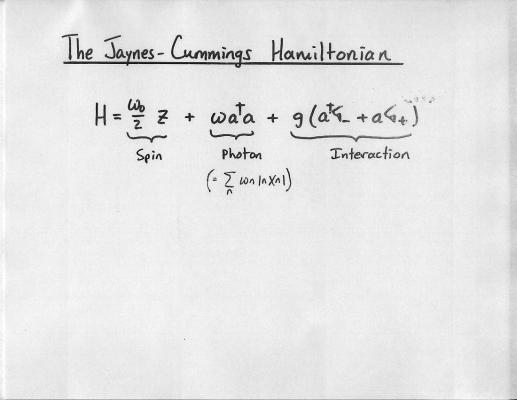 The Jaynes-Cummings Hamiltonian
H = ω₀/2 Z + ωa†a + g(a†σ₋ + aσ₊)
Spin Photon Interaction
(= Σₙ ωn |n⟩⟨n|)